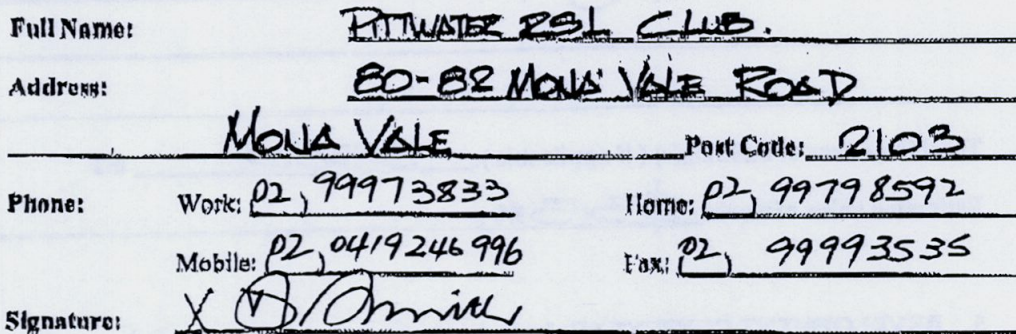 Full Name: PITTWATER RSL CLUB.
Address: 80-82 MONA VALE ROAD
MONA VALE Post Code: 2103
Phone: Work: (02) 99973833 Home: (02) 99798592
Mobile: (02) 0419246996 Fax: (02) 99993535
Signature: X